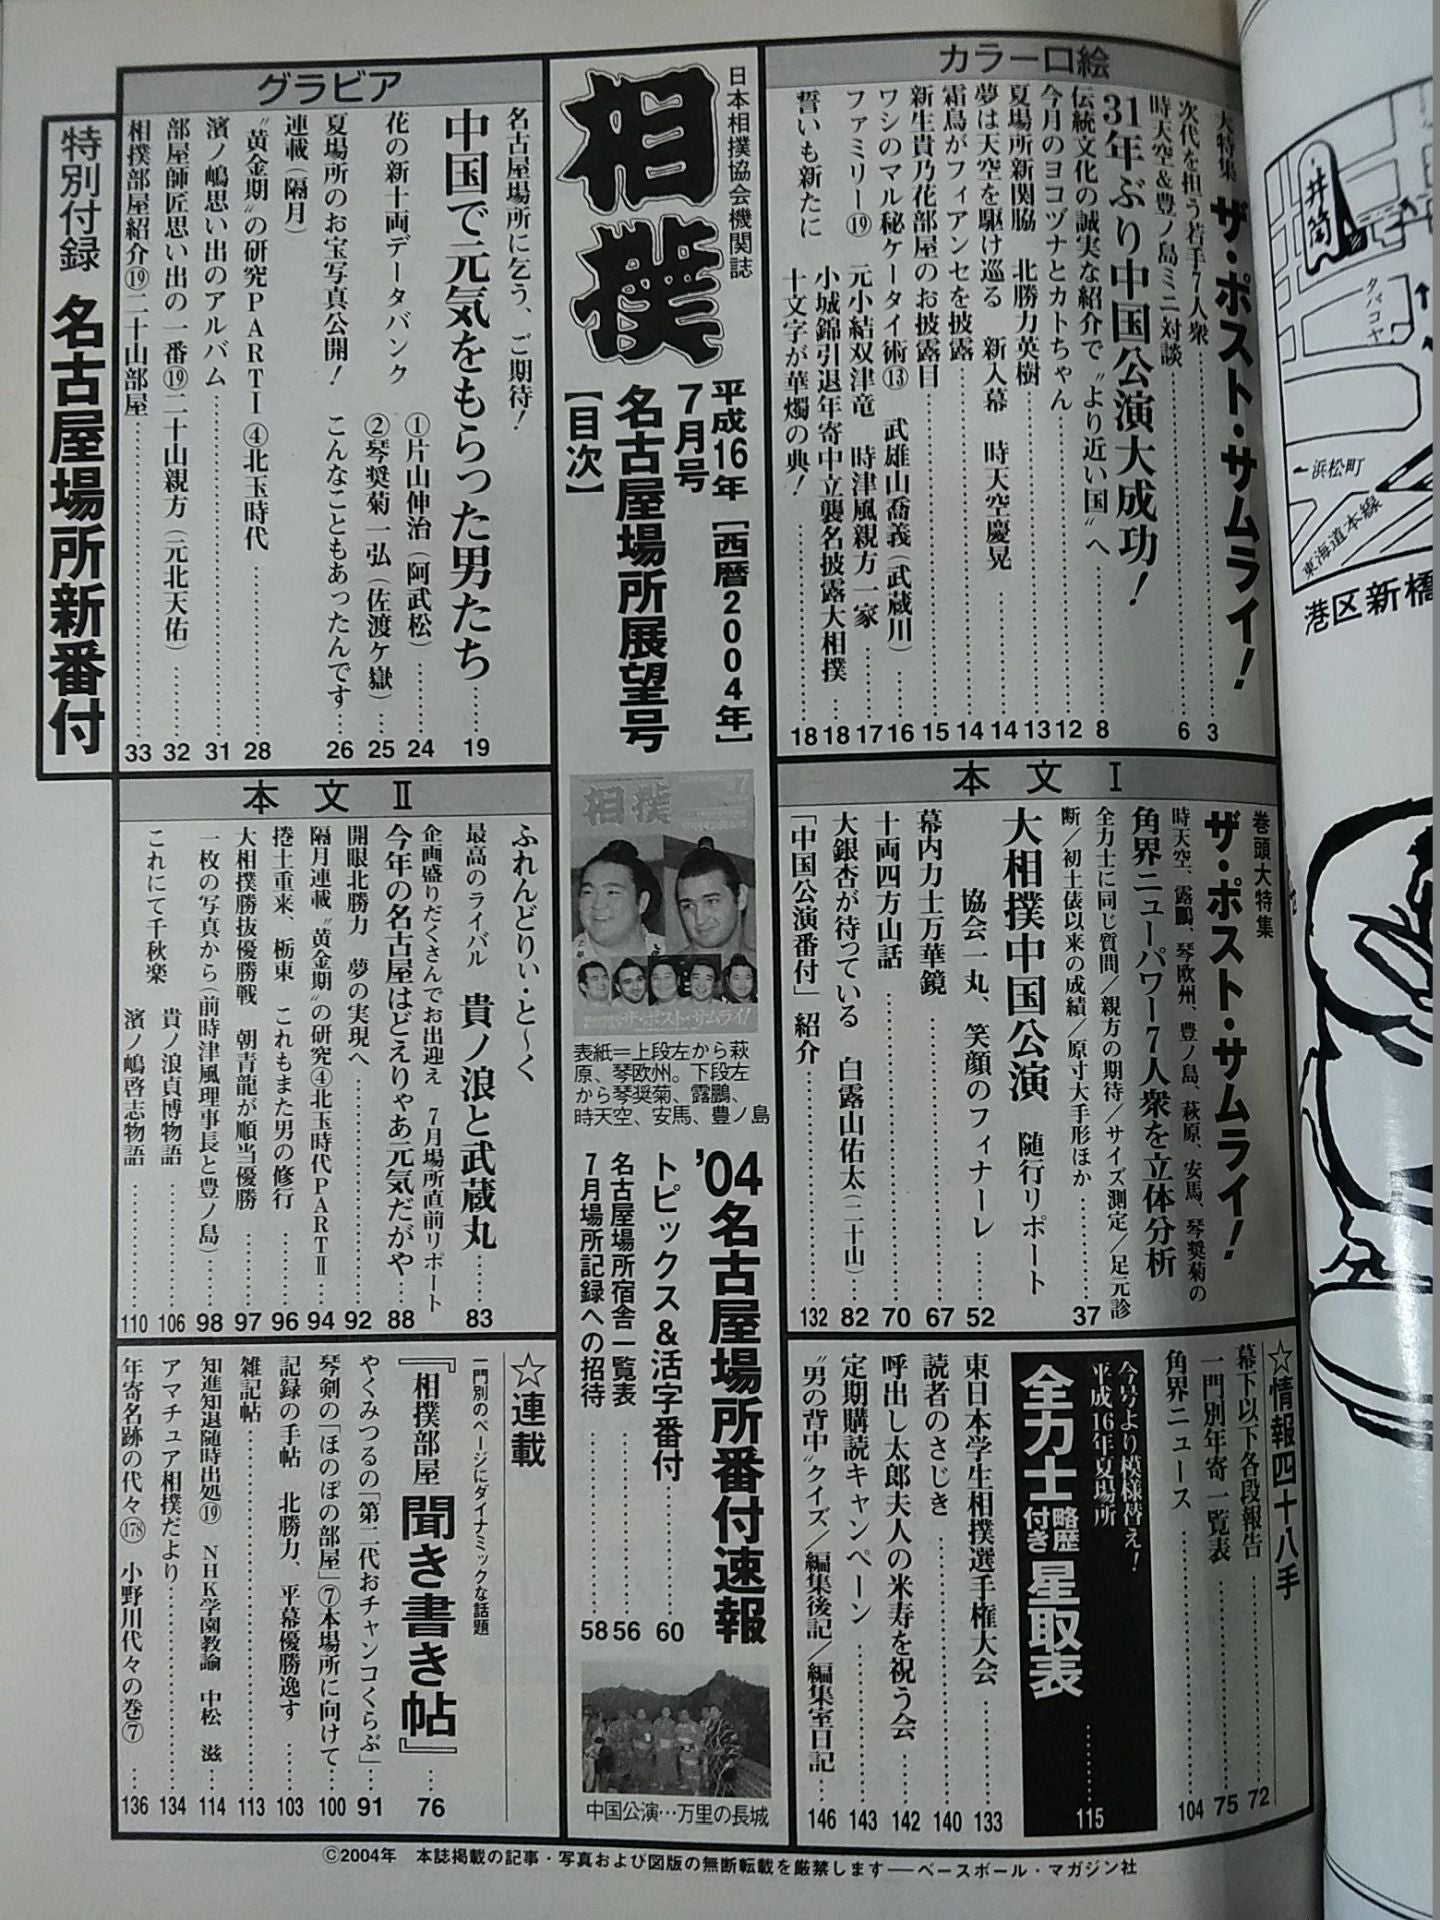 日本相撲協会機関誌
相撲
平成16年[西暦2004年]
7月号
名古屋場所展望号
【目次】
カラー口絵
大特集 ザ・ポスト・サムライ!……3
次代を担う若手7人衆
時天空&豊ノ島ミニ対談……6
31年ぶり中国公演大成功!……8
伝統文化の誠実な紹介で〝より近い国〟へ
今月のヨコヅナとカトちゃん……12
夏場所新関脇 北勝力英樹……13
夢は天空を駆け巡る 新入幕 時天空慶晃……14
霜鳥がフィアンセを披露……14
新生貴乃花部屋のお披露目……15
ワシのマル秘ケータイ術⑬ 武雄山喬義(武蔵川)……16
ファミリー⑲ 元小結双津竜 時津風親方一家……17
小城錦引退年寄中立襲名披露大相撲……18
誓いも新たに 十文字が華燭の典!……18
グラビア
名古屋場所に乞う、ご期待!
中国で元気をもらった男たち……19
花の新十両データバンク ①片山伸治(阿武松)……24
②琴奨菊一弘(佐渡ケ嶽)……25
夏場所のお宝写真公開! こんなこともあったんです……26
連載(隔月)
〝黄金期〟の研究PARTⅠ④北玉時代……28
濱ノ嶋思い出のアルバム……31
部屋師匠思い出の一番⑲二十山親方(元北天佑)……32
相撲部屋紹介⑲二十山部屋……33
特別付録 名古屋場所新番付
本文Ⅰ
巻頭大特集
ザ・ポスト・サムライ!
時天空、露鵬、琴欧州、豊ノ島、萩原、安馬、琴奨菊の
角界ニューパワー7人衆を立体分析
全力士に同じ質問/親方の期待/サイズ測定/足元診
断/初土俵以来の成績/原寸大手形ほか……37
大相撲中国公演 随行リポート
協会一丸、笑顔のフィナーレ……52
幕内力士万華鏡……67
十両四方山話……70
大銀杏が待っている 白露山佑太(二十山)……82
「中国公演番付」紹介……132
表紙=上段左から萩
原、琴欧州。下段左
から琴奨菊、露鵬、
時天空、安馬、豊ノ島
'04名古屋場所番付速報
トピックス&活字番付……60
名古屋場所宿舎一覧表……56
7月場所記録への招待……58
中国公演…万里の長城
本文Ⅱ
ふれんどりぃ・と〜く
最高のライバル 貴ノ浪と武蔵丸……83
企画盛りだくさんでお出迎え 7月場所直前リポート
今年の名古屋はどえりゃあ元気だがや……88
開眼北勝力 夢の実現へ……92
隔月連載〝黄金期〟の研究④北玉時代PARTⅡ……94
捲土重来、栃東 これもまた男の修行……96
大相撲勝抜優勝戦 朝青龍が順当優勝……97
一枚の写真から(前時津風理事長と豊ノ島)……98
これにて千秋楽 貴ノ浪貞博物語……106
濱ノ嶋啓志物語……110
☆情報四十八手
幕下以下各段報告……72
一門別年寄一覧表……75
角界ニュース……104
今号より模様替え!
平成16年夏場所
全力士略歴付き星取表……115
東日本学生相撲選手権大会……133
読者のさじき……140
呼出し太郎夫人の米寿を祝う会……142
定期購読キャンペーン……143
〝男の背中〟クイズ/編集後記/編集室日記……146
☆連載
一門別のページにダイナミックな話題
『相撲部屋 聞き書き帖』……76
やくみつるの「第二代おチャンコくらぶ」……91
琴剣の「ほのぼの部屋」⑦本場所に向けて……100
記録の手帖 北勝力、平幕優勝逸す……103
雑記帖……113
知進知退随時出処⑲ NHK学園教諭 中松 滋……114
アマチュア相撲だより……134
年寄名跡の代々(178) 小野川代々の巻⑦……136
©2004年 本誌掲載の記事・写真および図版の無断転載を厳禁します──ベースボール・マガジン社
井筒
タマコヤ
←浜松町
東海道本線
港区新橋